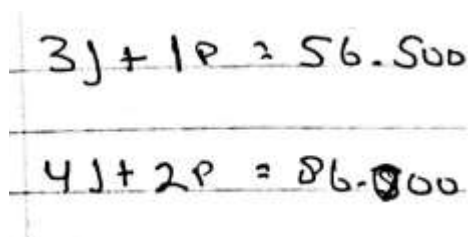 3J + 1P = 56.500
4J + 2P = 86.000